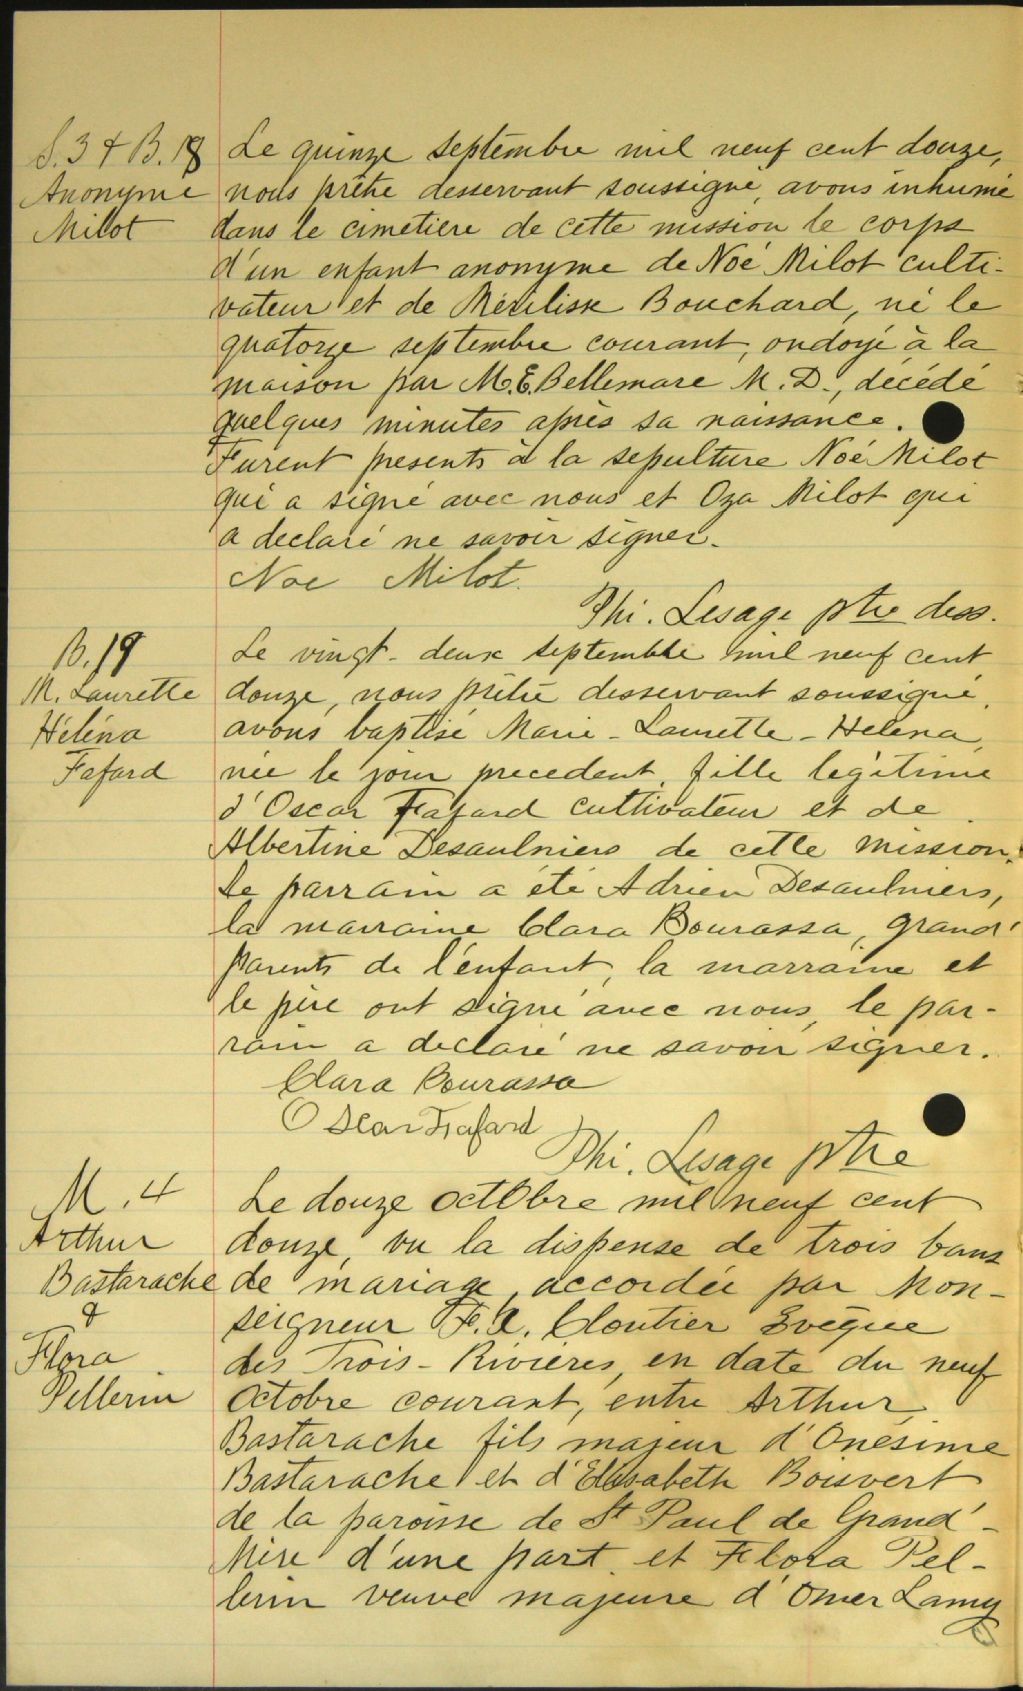 S. 3 & B. 18
Anonyme
Milot
Le quinze septembre mil neuf cent douze,
nous prêtre desservant soussigné, avons inhumé
dans le cimetière de cette mission le corps
d'un enfant anonyme de Noé Milot culti-
vateur et de Mérilisse Bouchard, né le
quatorze septembre courant, ondoyé à la
maison par M. E. Bellemare M. D., décédé
quelques minutes après sa naissance.
Furent presents à la sepulture Noé Milot
qui a signé avec nous et Oza Milot qui
a declaré ne savoir signer.
Noe Milot.
Phi. Lesage ptre dess.
B. 19
M. Laurette
Héléna
Fafard
Le vingt-deux septembre mil neuf cent
douze, nous prêtre desservant soussigné,
avons baptisé Marie-Laurette-Helena,
née le jour precedent, fille legitime
d'Oscar Fafard cultivateur et de
Albertine Desaulniers de cette mission.
Le parrain a été Adrien Desaulniers,
la marraine Clara Bourassa, grand'
parents de l'enfant, la marraine et
le père ont signé avec nous, le par-
rain a declaré ne savoir signer.
Clara Bourassa
Oscar Fafard
Phi. Lesage ptre
M. 4
Arthur
Bastarache
&
Flora
Pellerin
Le douze octobre mil neuf cent
douze, vu la dispense de trois bans
de mariage, accordée par Mon-
seigneur F. X. Cloutier Evêque
des Trois-Rivières, en date du neuf
octobre courant, entre Arthur
Bastarache fils majeur d'Onésime
Bastarache et d'Elisabeth Boisvert
de la paroisse de St Paul de Grand'-
Mère d'une part, et Flora Pel-
lerin veuve majeure d'Omer Lamy